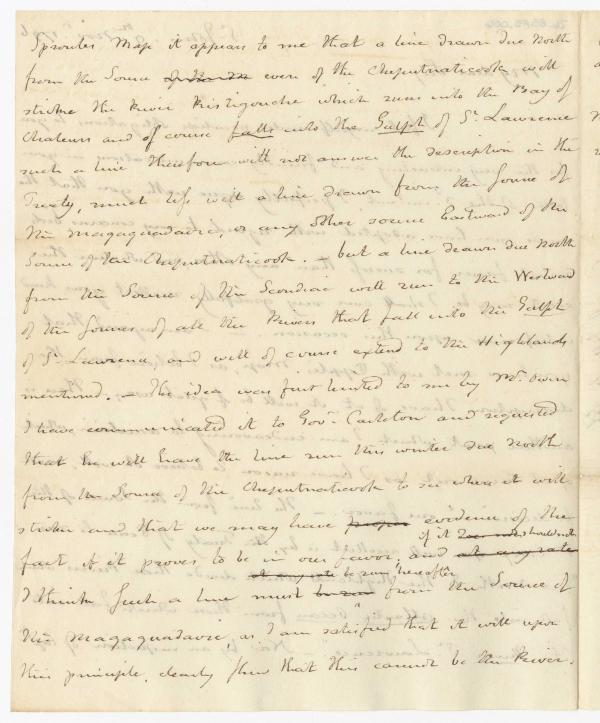 Sproules Map it appears to me that a line drawn due North
from the Source of the even of the Cheputnaticook will
strike the River Ristigouche which runs into the Bay of
Chaleurs and of course falls into the Gulph of St. Lawrence
such a line therefore will not answer the description in the
Treaty, much less will a line drawn from the Source of
the Magaquadavic, or any other source Eastward of the
Source of the Cheputnaticook. – but a line drawn due North
from the Source of the Scondiac will run to the Westward
of the Sources of all the Rivers that fall into the Gulph
of St. Lawrence, and will of course extend to the Highlands
mentioned. – The idea was first hinted to me by Mr. Owen
I have communicated it to Govr. Carleton and requested
that he will have the line run this winter due North
from the Source of the Cheputnaticook to see where it will
strike and that we may have proper evidence of the
if it should not
fact if it proves to be in our favor, and at any rate
at any rate be run hereafter
I think such a line must be run from the Source of
the Magaquadavic, as I am satisfied that it will upon
this principle, clearly shew that this cannot be the River.